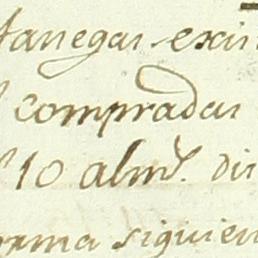 fanegas exis
compradas
10 alms. di
orma siguien